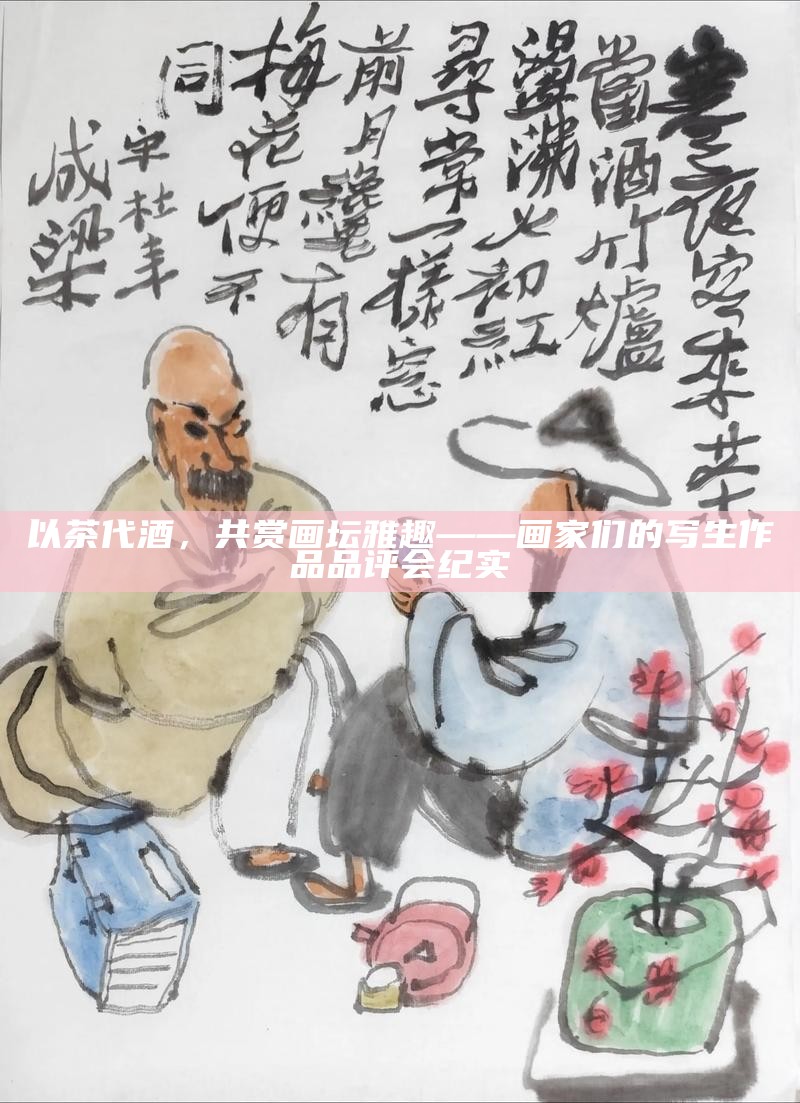 寒夜客来茶
當酒竹爐
湯沸火初紅
尋常一樣窓
前月纔有
梅花便不
同
宋杜耒
成梁
以茶代酒，共赏画坛雅趣——画家们的写生作
品品评会纪实